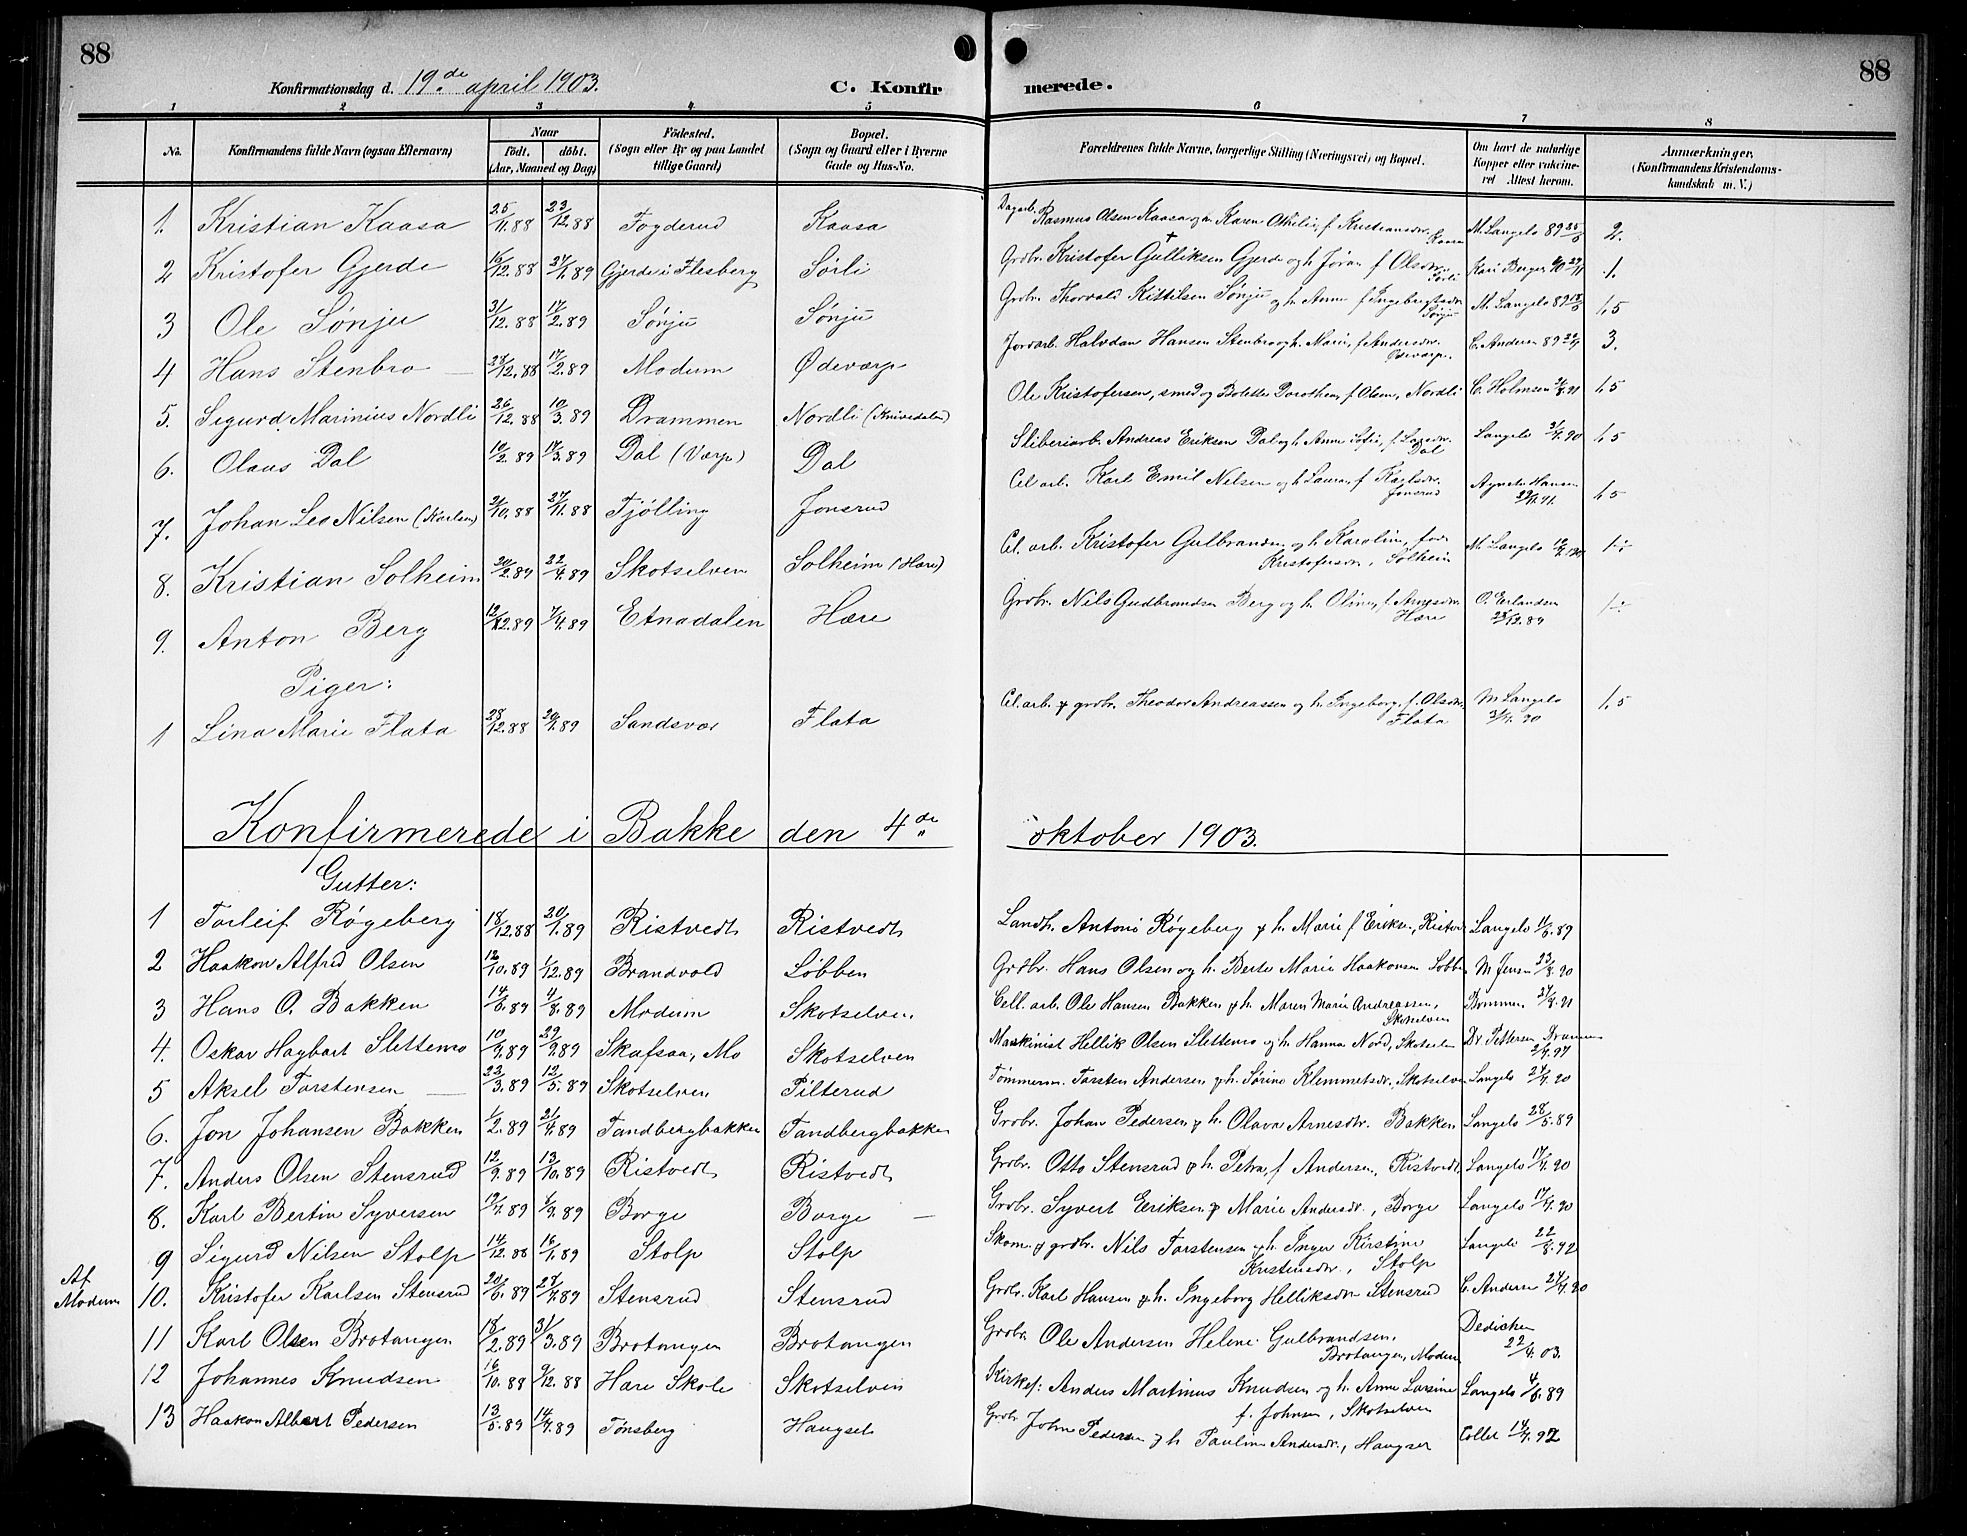 88
88
Konfirmationsdag d. 19de april 1903.
C. Konfirmerede.
1 2 3 4 5 6 7 8
No. Konfirmandens fulde Navn (ogsaa Efternavn) Naar født. døbt. (Aar, Maaned og Dag) Födested. (Sogn eller By og paa Landet tillige Gaard) Bopæl. (Sogn og Gaard eller i Byerne Gade og Hus-No. Forældrenes fulde Navne, borgerlige Stilling (Næringsvei) og Bopæl. Om havt de naturlige Kopper eller vakcineret Attest herom. Anmærkninger, (Konfirmandens Kristendomskundskab m. V.)
1. Kristian Kaasa 25/11.88 23/12.88 Fogderud Kaasa Dagarb. Rasmus Olsen Kaasa og Karen Othilie, f. Kristiansdr. Kaasa M. Langelo 89 2.
2 Kristofer Gjerde 16/12.88 27/1.89 Gjerde i Flesberg Sørli Grdbr. Kristofer Gulliksen Gjerde og h. Jøran f. Olsdr. Sørli Kari Berger 1.
3 Ole Sønju 31/12.88 17/2.89 Sønju Sønju Grdbr. Thorvald Kittilsen Sønju og h. Anne f. Ingebrigtsdr. Sønju M. Langelo 89 1,5
4 Hans Stenbro 28/12.88 17/2.89 Modum Ødeværp Jordarb. Halvdan Hansen Stenbro og h. Marie, f. Andersdr. Ødeværp. C. Andersn 89 3.
5. Sigurd Marinius Nordli 26/12.88 10/3.89 Drammen Nordli (Knivedalen) Ole Kristofersen, smed og Bolette Dorothea, f. Olsen, Nordli C. Holmsen 1,5
6. Olaus Dal 10/2.89 17/3.89 Dal (Værp) Dal Sliberiarb. Andreas Eriksen Dal og h. Anne Sofie, f. Larsdr. Dal Langelo 3/4.90 1,5
7. Johan Leo Nilsen (Karlsen) 2/10.88 27/11.88 Tjølling Jonsrud Cel. arb. Karl Emil Nilsen og h. Laura, f. Karlsdr. Jonsrud Agnete Hansen 1,5
8. Kristian Solheim 20/2.89 22/4.89 Skotselven Solheim (Hære) Cel. arb. Kristofer Gulbrandsen og h. Karoline, fød Kristofersdr., Solheim M. Langelo 1÷
9. Anton Berg 12/12.89 7/4.89 Etnadalen Hære Grdbr. Nils Gudbrandsen Berg og h. Oline, f. Arnesdr. Hære O. Erlandsen 23/12.89 1÷
Piger:
1 Lina Marie Flata 28/12.88 20/1.89 Sandsvær Flata Cel. arb. & grdbr. Theodor Andreassen og h. Ingeborg, f. Olsdr. Flata M Langelo 1,5
Konfirmerede i Bakke den 4de oktober 1903.
Gutter:
1 Torleif Røgeberg 18/12.88 20/1.89 Ristvedt Ristvedt Landh. Anton Røgeberg & h. Marie f. Eriksn., Ristv. Langelo 11/6.89
2 Haakon Alfred Olsen 12/10.89 1/12.89 Brandvold Løbben Grdbr. Hans Olsen og h. Berte Marie Haakonsen Løbben M Jensen 23/4.90
3 Hans O. Bakken 14/6.89 4/8.89 Modum Skotselven Cell. arb. Ole Hansen Bakken & h. Maren Marie Andreassen, Skotselven Bommen 27/4.91
4. Oskar Hagbart Slettemo 10/7.89 29/9.89 Skafsaa, Mo Skotselven Maskinist Hellik Olsen Slettemo og h. Hanna Nord, Skotselven Dr. Pettersen, Drammen
5 Aksel Torstensen 23/3.89 12/5.89 Skotselven Pilterud Tømmerm. Torsten Andersen & h. Sørine Klemmetsdr., Skotselven Langelo 27/4.90
6. Jon Johansen Bakken 1/2.89 21/4.89 Tandbergbakken Tandbergbakken Grdbr. Johan Pedersen & h. Olava Arnesdtr. Bakken Langelo 28/5.89
7. Anders Olsen Stensrud 12/9.89 13/10.89 Ristvedt Ristvedt Grdbr. Otto Stensrud & h. Petra, f. Andersen, Ristvedt Langelo 17/4.90
8. Karl Bertin Syversen 19/7.89 1/9.89 Borge Borge Grdbr. Syvert Eriksen & Marie Andersdr., Borge Langelo 17/4.90
9 Sigurd Nilsen Stolp 14/12.88 16/1.89 Stolp Stolp Skom. & grdbr. Nils Torstensen & h. Inger Kirstine Kristensdr., Stolp Langelo 22/8.92
Af Modum 10. Kristofer Karlsen Stensrud 20/6.89 28/7.89 Stensrud Stensrud Grdbr. Karl Hansen & h. Ingeborg Helliksdr Stensrud C. Andersn 27/4.90
11 Karl Olsen Brotangen 18/2.89 31/3.89 Brotangen Brotangen Grdbr. Ole Andersen Helene Gulbrandsen, Brotangen, Modum Dedichen 22/4.03.
12 Johannes Knudsen 16/10.88 9/12.88 Hære Skole Skotselven Kirkes: Anders Martinus Knudsen og h. Anne Larsine f. Johnsen, Skotselven Langelo 4/6.89
13 Haakon Albert Pedersen 13/5.89 14/7.89 Tønsberg Haugset Grdbr John Pedersen & h Pauline Andersdr., Haugset Collet 14/7.92